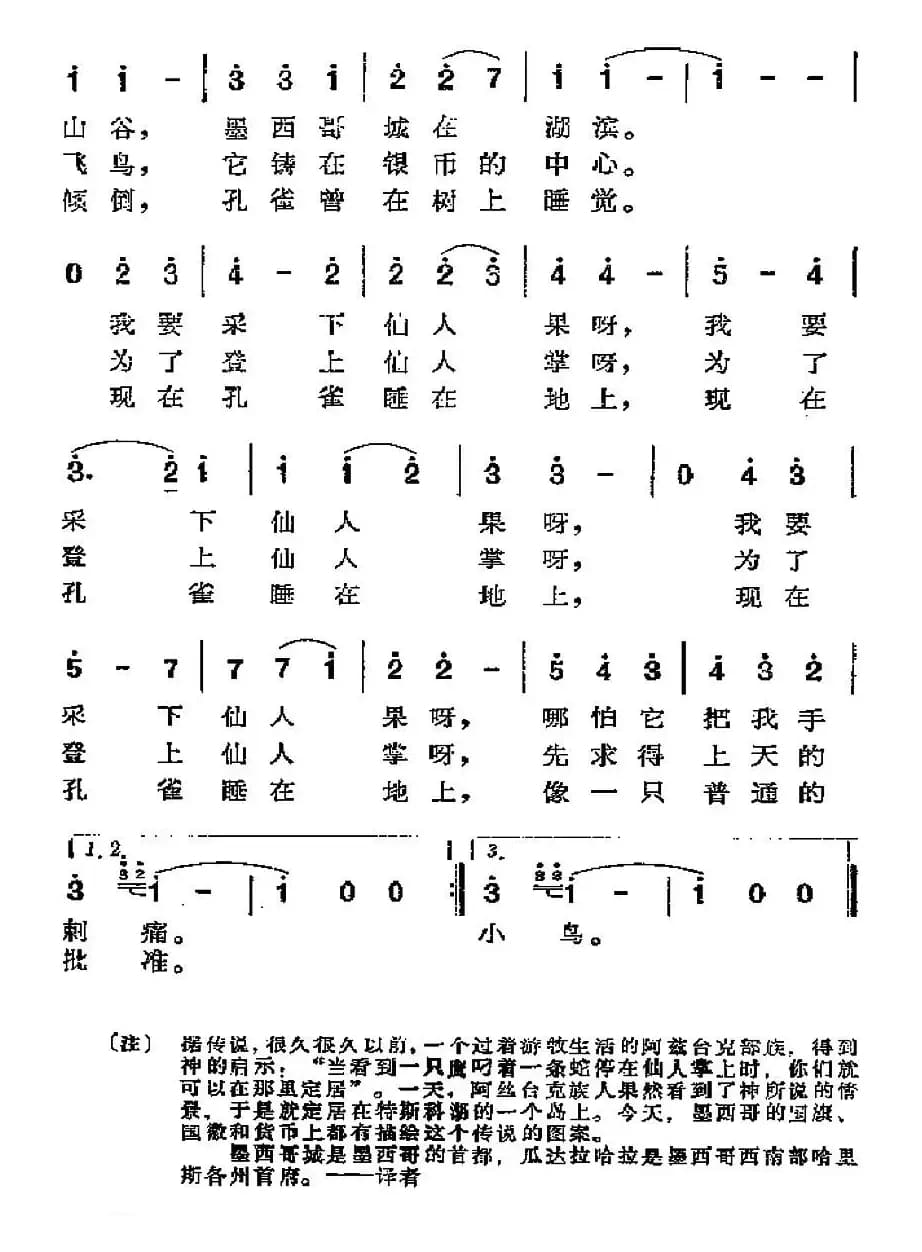 1 1 - | 3 3 1 | 2 2 7 | 1 1 - | 1 - - |
山谷， 墨西哥 城在 湖滨。
飞鸟， 它铸在 银币的 中心。
倾倒， 孔雀曾 在树上 睡觉。
0 2 3 | 4 - 2 | 2 2 3 | 4 4 - | 5 - 4 |
我要 采 下 仙人 果呀， 我 要
为了 登 上 仙人 掌呀， 为 了
现在 孔 雀 睡在 地上， 现 在
3. 2 1 | 1 1 2 | 3 3 - | 0 4 3 |
采 下 仙人 果呀， 我要
登 上 仙人 掌呀， 为了
孔 雀 睡在 地上， 现在
5 - 7 | 7 7 1 | 2 2 - | 5 4 3 | 4 3 2 |
采 下 仙人 果呀， 哪怕它 把我手
登 上 仙人 掌呀， 先求得 上天的
孔 雀 睡在 地上， 像一只 普通的
1. 2. 3.
3 3 2 1 - | 1 0 0 :| 3 3 3 1 - | 1 0 0 ||
刺 痛。 小 鸟。
批 准。
〔注〕 据传说，很久很久以前，一个过着游牧生活的阿兹台克部族，得到
神的启示：“当看到一只鹰叼着一条蛇停在仙人掌上时，你们就
可以在那里定居”。一天，阿丝台克族人果然看到了神所说的情
景，于是就定居在特斯科湖的一个岛上。今天，墨西哥的国旗、
国徽和货币上都有描绘这个传说的图案。
墨西哥城是墨西哥的首都，瓜达拉哈拉是墨西哥西南部哈里
斯各州首席。——译者